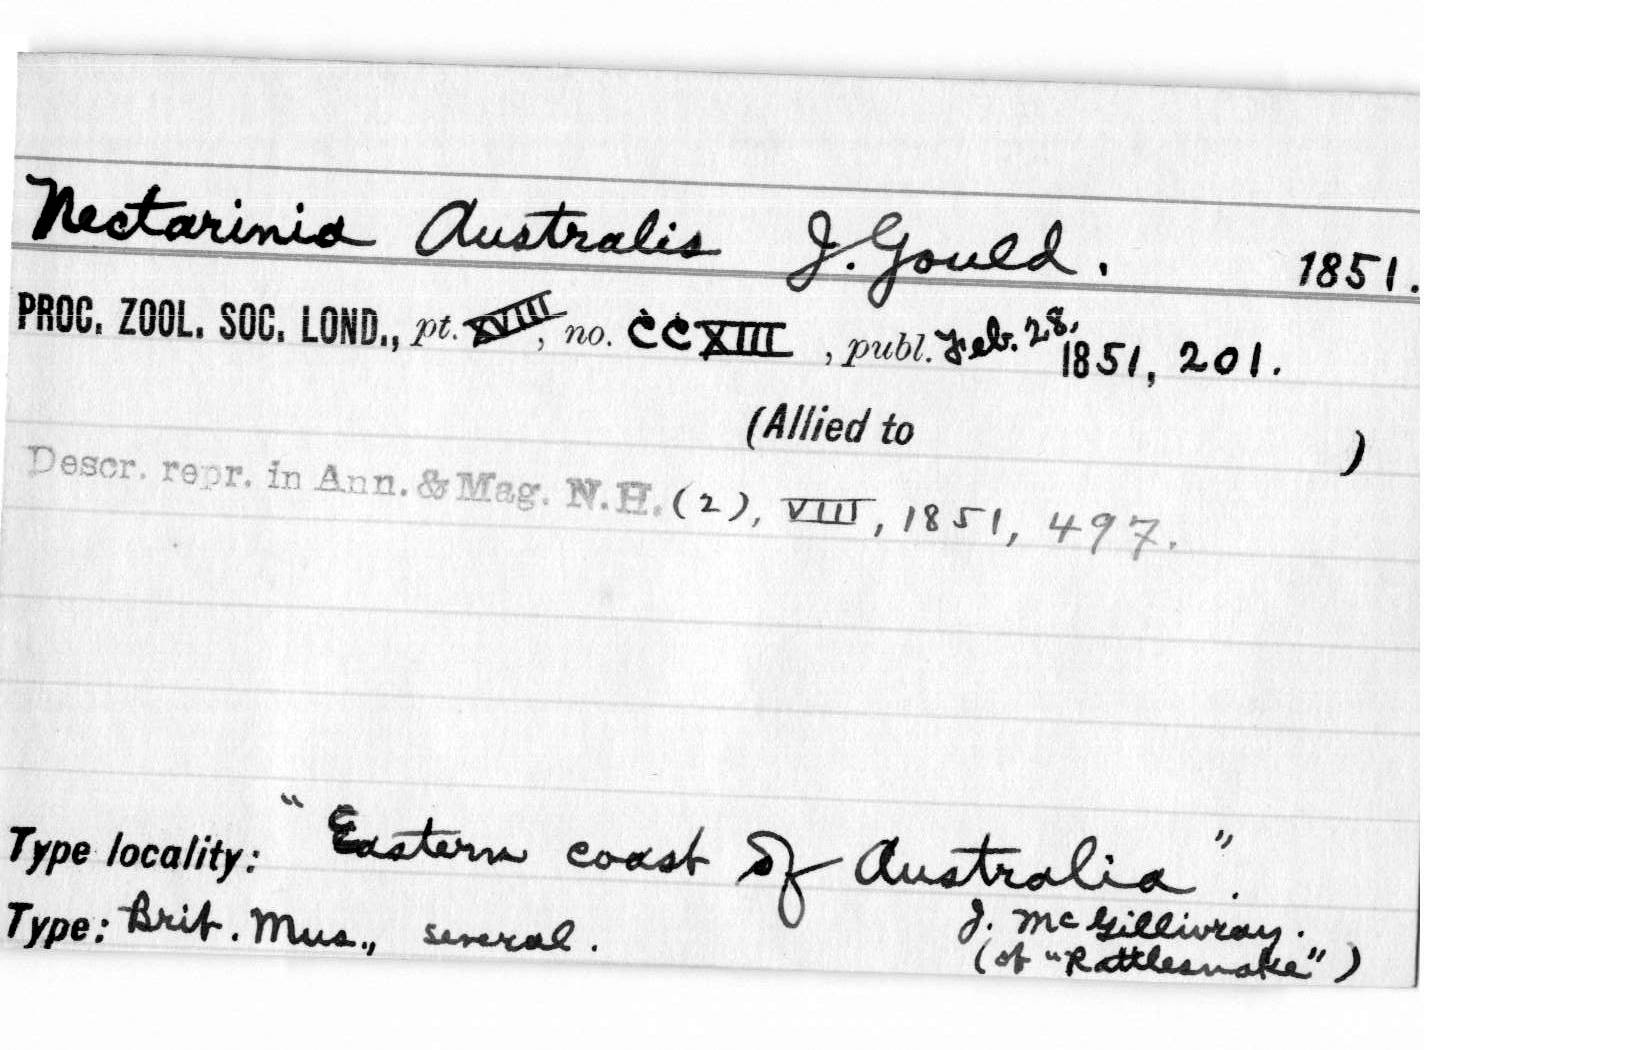 Nectarinia Australis J. Gould. 1851.
PROC. ZOOL. SOC. LOND., pt. XVIII, no. CCXIII, publ. Feb. 28, 1851, 201.
(Allied to )
Descr. repr. in Ann. & Mag. N.H. (2), VIII, 1851, 497.
Type locality: "Eastern coast of Australia".
Type: Brit. Mus., several. J. McGillivray.
(of "Rattlesnake")